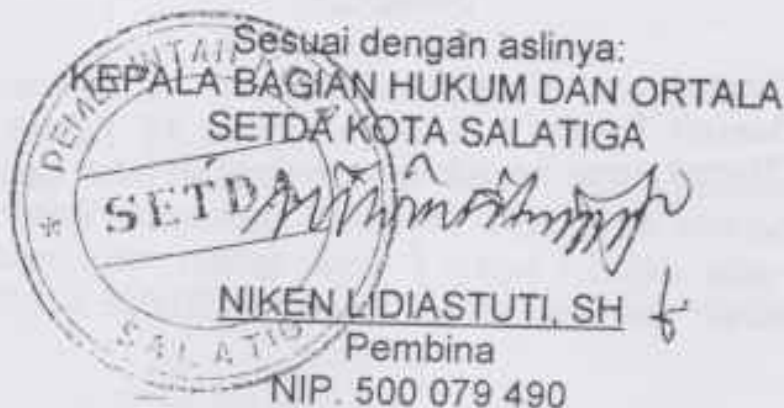 Sesuai dengan aslinya:
KEPALA BAGIAN HUKUM DAN ORTALA
SETDA KOTA SALATIGA
SETDA
NIKEN LIDIASTUTI, SH
Pembina
NIP. 500 079 490